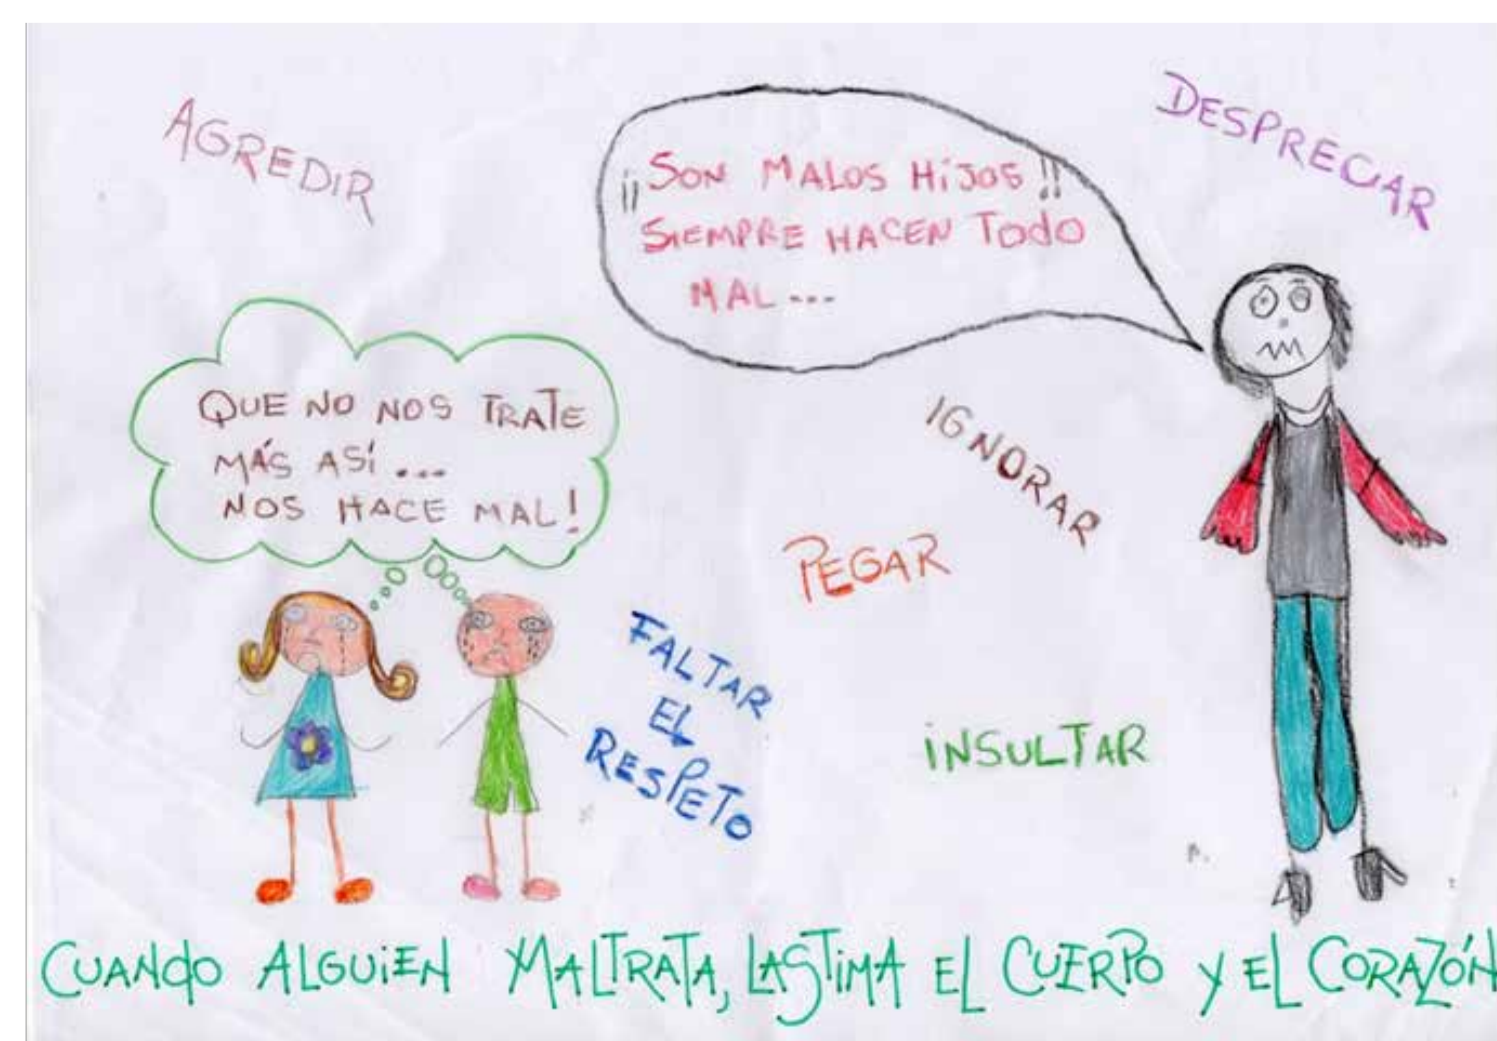 AGREDIR
DESPRECIAR
¡¡SON MALOS HIJOS!!
SIEMPRE HACEN TODO
MAL...
QUE NO NOS TRATE
MÁS ASÍ...
NOS HACE MAL!
IGNORAR
PEGAR
FALTAR
EL
RESPETO
INSULTAR
CUANDO ALGUIEN MALTRATA, LASTIMA EL CUERPO Y EL CORAZÓN